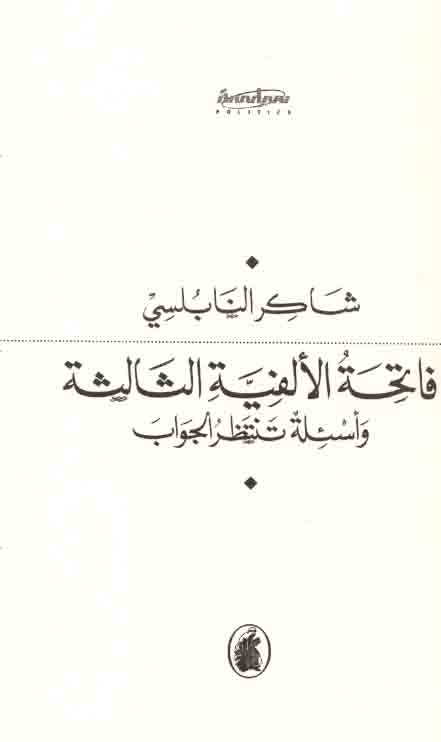 سياسة
POLITICS
شَاكِر النَابُلسِيْ
فَاتِحَةُ الألفِيَّةِ الثَالِثَة
وَأسْئِلَةٌ تَنتَظِرُ الجَوَابَ